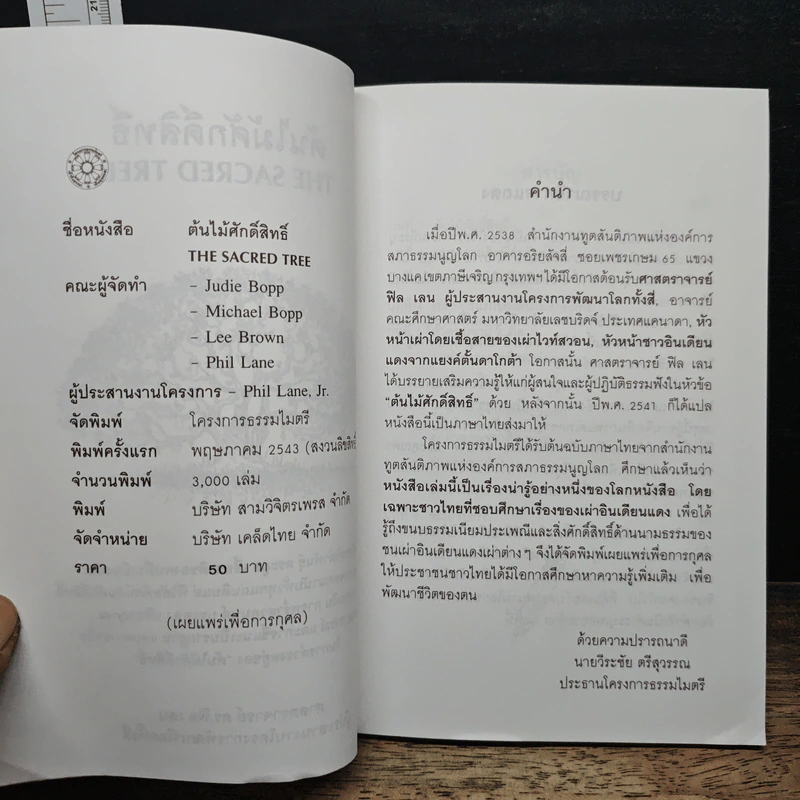 ชื่อหนังสือ ต้นไม้ศักดิ์สิทธิ์
THE SACRED TREE
คณะผู้จัดทำ – Judie Bopp
– Michael Bopp
– Lee Brown
– Phil Lane
ผู้ประสานงานโครงการ – Phil Lane, Jr.
จัดพิมพ์ โครงการธรรมไมตรี
พิมพ์ครั้งแรก พฤษภาคม 2543 (สงวนลิขสิทธิ์
จำนวนพิมพ์ 3,000 เล่ม
พิมพ์ บริษัท สามวิจิตรเพรส จำกัด
จัดจำหน่าย บริษัท เคล็ดไทย จำกัด
ราคา 50 บาท
(เผยแพร่เพื่อการกุศล)
คำนำ
เมื่อปีพ.ศ. 2538 สำนักงานทูตสันติภาพแห่งองค์การ
สภาธรรมนูญโลก อาคารอริยสัจสี่ ซอยเพชรเกษม 65 แขวง
บางแค เขตภาษีเจริญ กรุงเทพฯ ได้มีโอกาสต้อนรับศาสตราจารย์
ฟิล เลน ผู้ประสานงานโครงการพัฒนาโลกทั้งสี่, อาจารย์
คณะศึกษาศาสตร์ มหาวิทยาลัยเลซบริดจ์ ประเทศแคนาดา, หัว
หน้าเผ่าโดยเชื้อสายของเผ่าไวท์สวอน, หัวหน้าชาวอินเดียน
แดงจากแยงค์ตั้นดาโกต้า โอกาสนั้น ศาสตราจารย์ ฟิล เลน
ได้บรรยายเสริมความรู้ให้แก่ผู้สนใจและผู้ปฏิบัติธรรมฟังในหัวข้อ
"ต้นไม้ศักดิ์สิทธิ์" ด้วย หลังจากนั้น ปีพ.ศ. 2541 ก็ได้แปล
หนังสือนี้เป็นภาษาไทยส่งมาให้
โครงการธรรมไมตรีได้รับต้นฉบับภาษาไทยจากสำนักงาน
ทูตสันติภาพแห่งองค์การสภาธรรมนูญโลก ศึกษาแล้วเห็นว่า
หนังสือเล่มนี้เป็นเรื่องน่ารู้อย่างหนึ่งของโลกหนังสือ โดย
เฉพาะชาวไทยที่ชอบศึกษาเรื่องของเผ่าอินเดียนแดง เพื่อได้
รู้ถึงขนบธรรมเนียมประเพณีและสิ่งศักดิ์สิทธิ์ด้านนามธรรมของ
ชนเผ่าอินเดียนแดงเผ่าต่างๆ จึงได้จัดพิมพ์เผยแพร่เพื่อการกุศล
ให้ประชาชนชาวไทยได้มีโอกาสศึกษาหาความรู้เพิ่มเติม เพื่อ
พัฒนาชีวิตของตน
ด้วยความปรารถนาดี
นายวีระชัย ตรีสุวรรณ
ประธานโครงการธรรมไมตรี